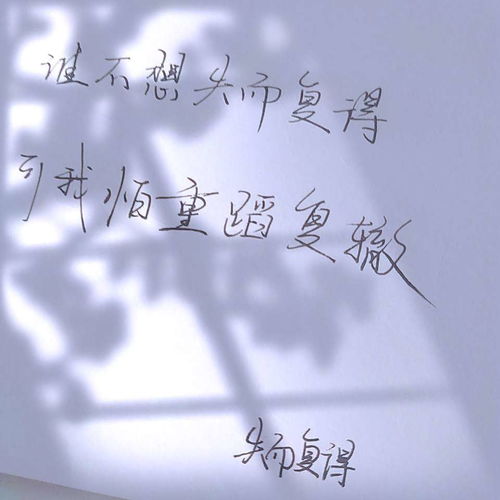 谁不想失而复得
可我怕重蹈复辙
失而复得